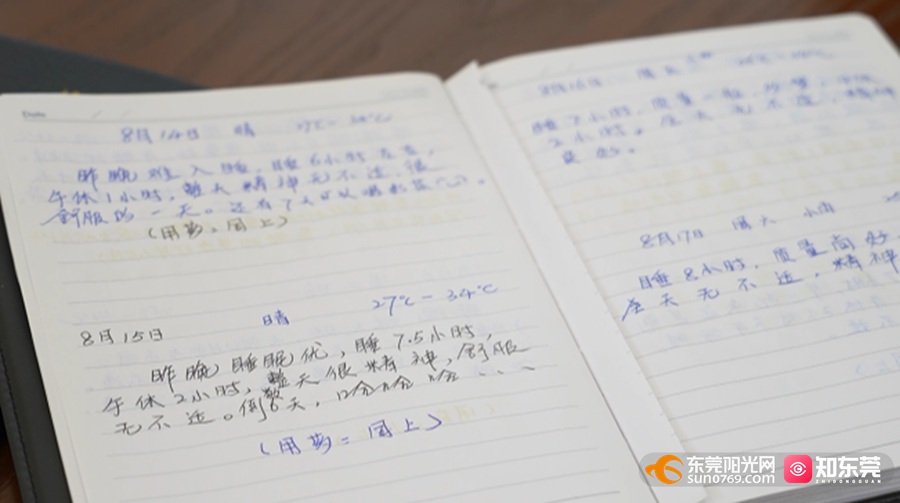 Date
8月14日 晴 27℃-34℃
昨晚难入睡，睡6小时左右，
午休1小时，整天精神无不适，很
舒服的一天。还有了
（用药：同上）
8月15日 晴 27℃-34℃
昨晚睡眠优，睡7.5小时，
午休2小时，整天很精神，舒服
无不适。倒数6天，
（用药：同上）
8月16日 周五
睡7小时，质量一般，午休
2小时。全天无不适，精神
良好。
8月17日 周六 小雨
睡8小时，质量尚好，
全天无不适，精神
东莞阳光网
sun0769.com
知东莞
ZHIDONGGUAN